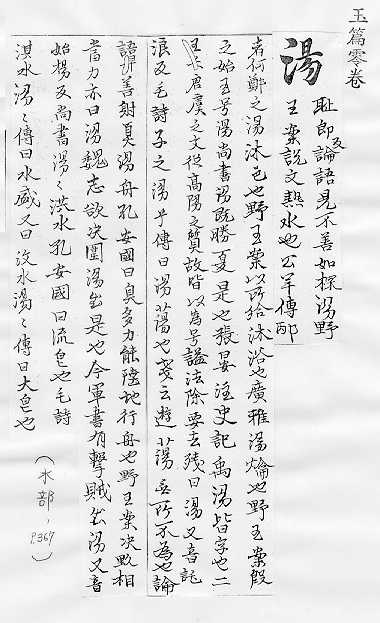 玉篇零卷
湯 耻郎反論語見不善如探湯野
王案說文熱水也公羊傳邴
者何鄭之湯沐邑也野王案以所給沐浴也廣雅湯爚也野王案殷
之始王号湯尚書湯既勝夏是也張晏注史記禹湯皆字也二
王去唐虞之文從高陽之質故皆以為号謚法除要去残曰湯又音託
浪反毛詩子之湯乎傳曰湯蕩也戔云遊蕩無所不為也論
語羿善射奡湯舟孔安國曰奡多力能陸地行舟也野王案决敗相
當力亦曰湯魏志欲决圍湯出是也今軍書有擊賊出湯又音
始楊反尚書湯〻洪水孔安國曰流皃也毛詩
淇水湯〻傳曰水盛又曰汶水湯〻傳曰大皃也
（水部，P.367）